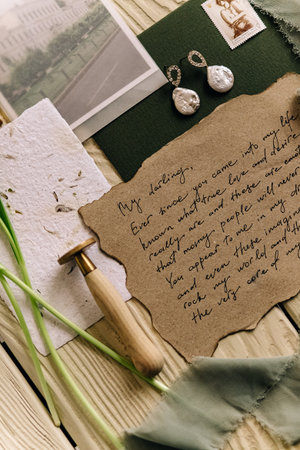 My darling,
Ever since you came into my life
known what true love and desire
really are and these are emot
that many people will never
You appear to me in my
and even these image
rock my world and th
the very core of my